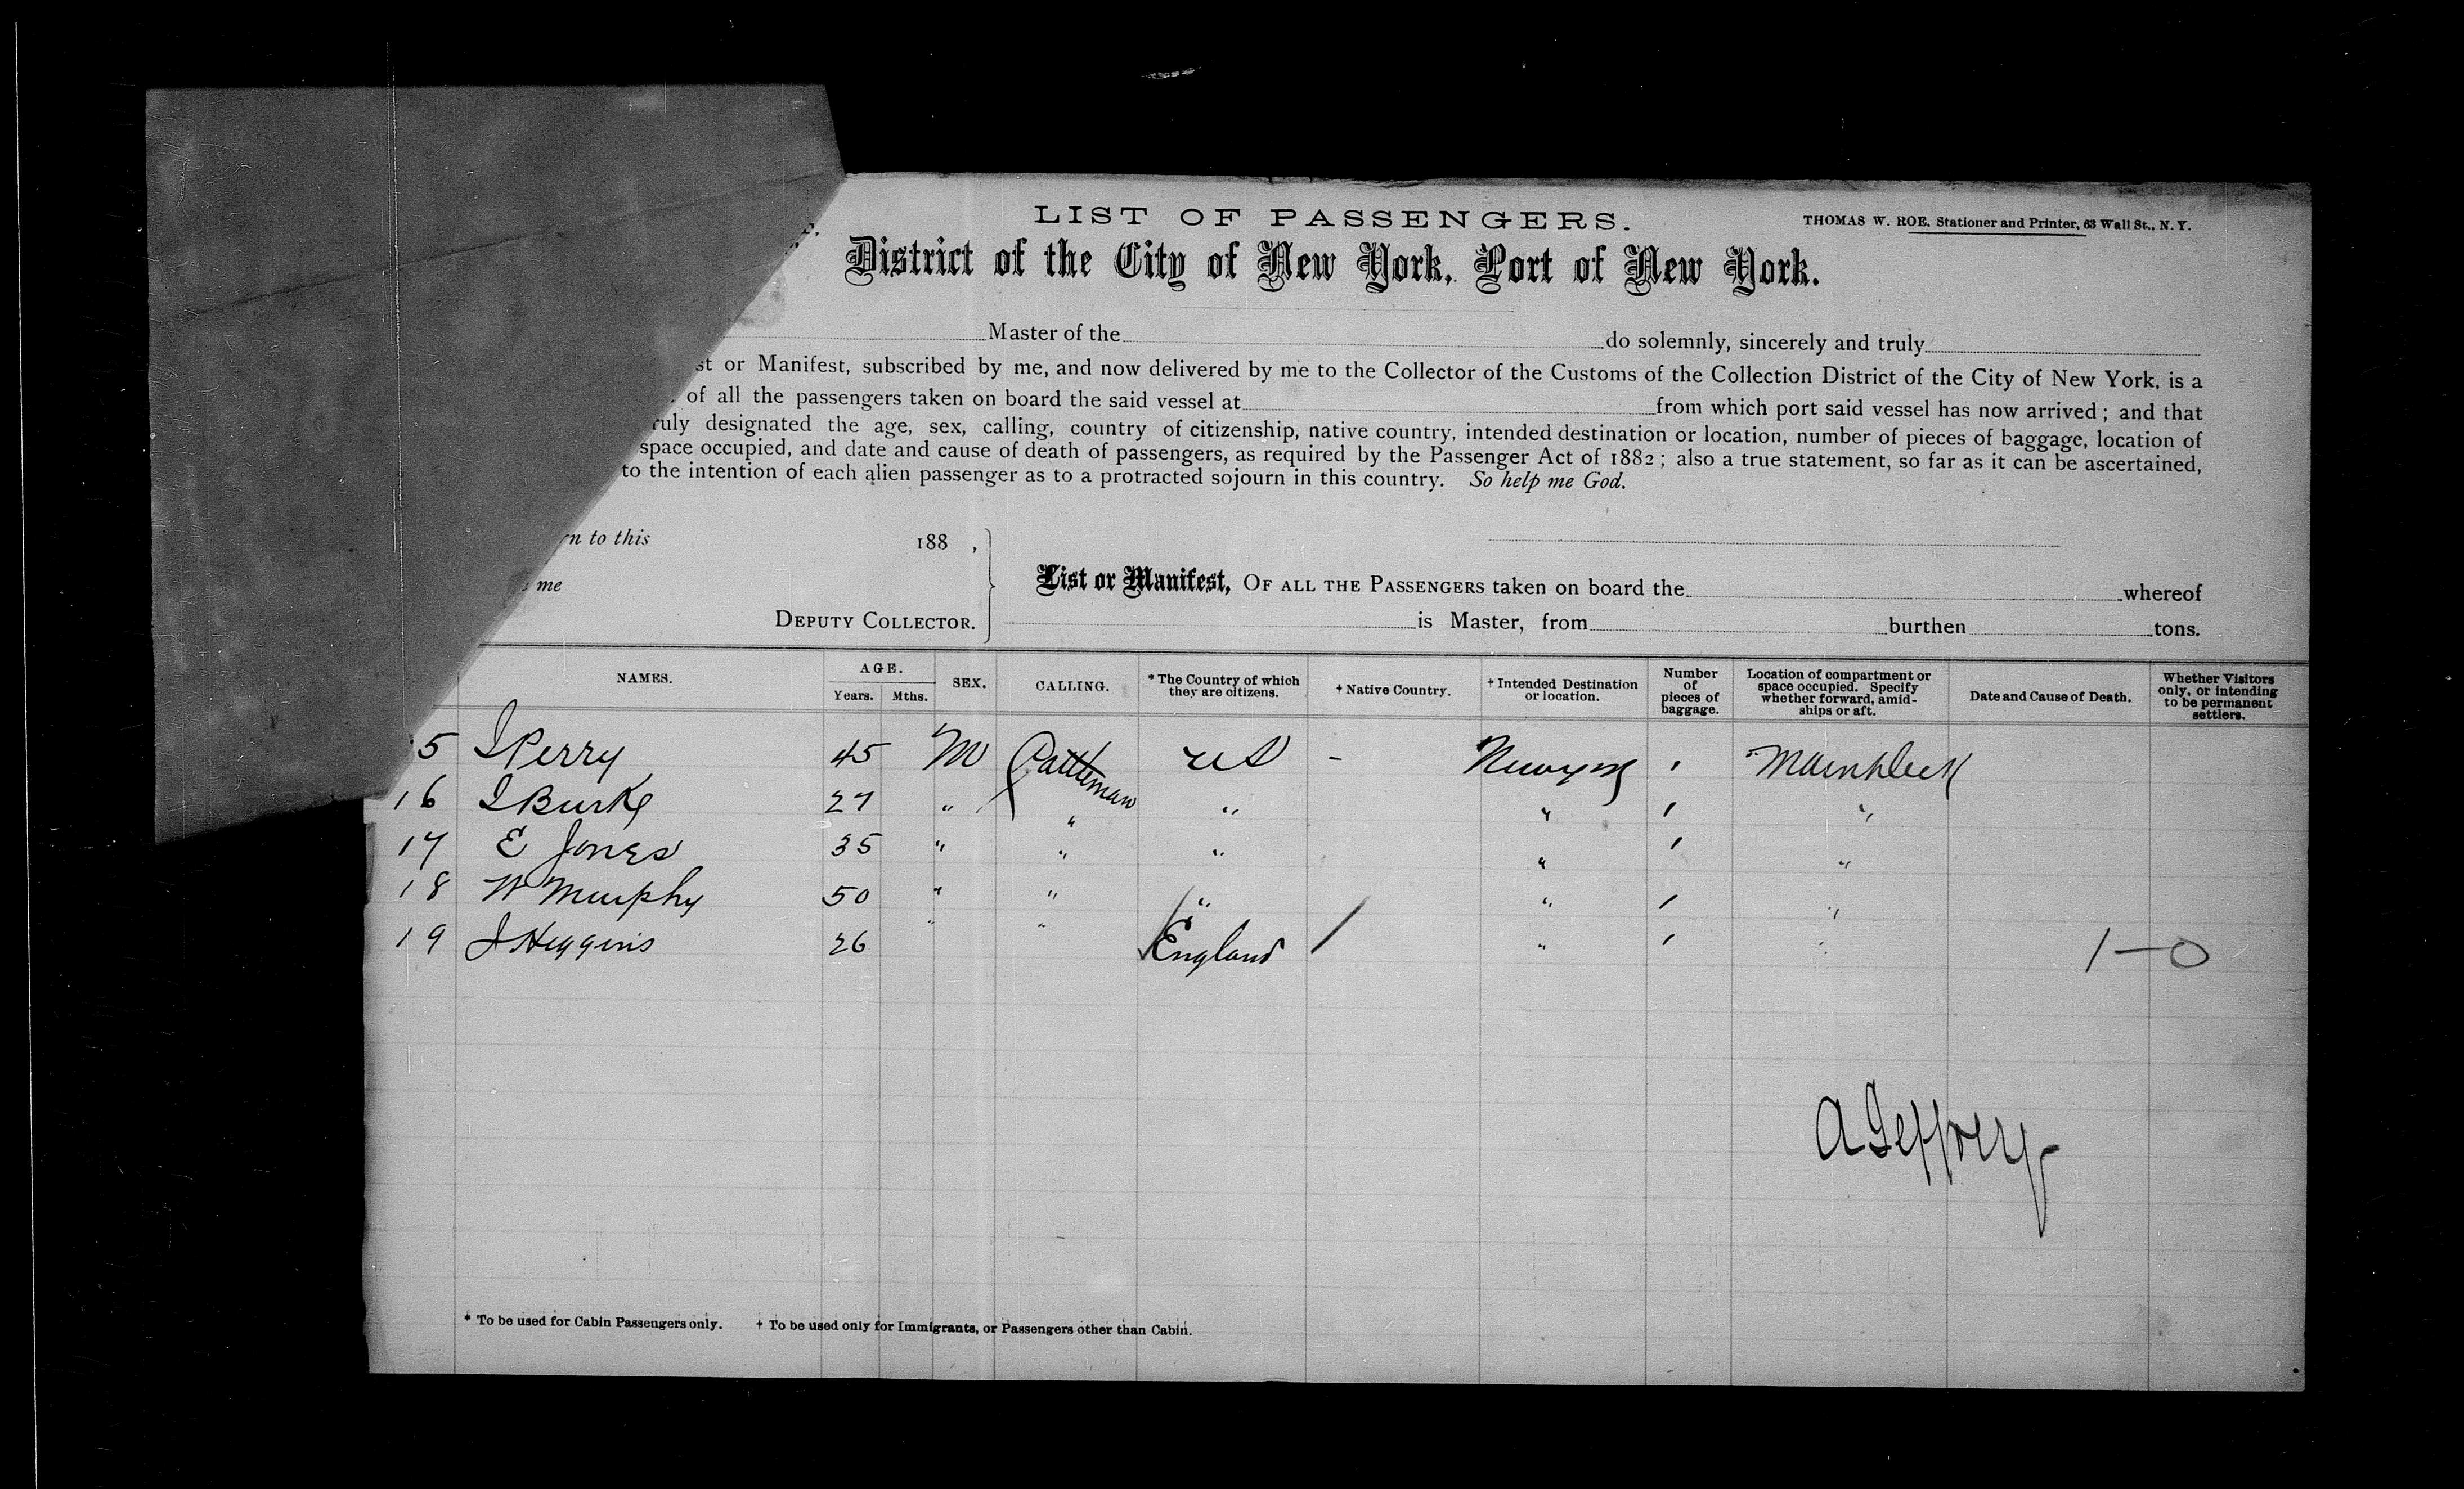 LIST OF PASSENGERS.
THOMAS W. ROE, Stationer and Printer, 63 Wall St., N. Y.
District of the City of New York, Port of New York.
Master of the do solemnly, sincerely and truly
st or Manifest, subscribed by me, and now delivered by me to the Collector of the Customs of the Collection District of the City of New York, is a
of all the passengers taken on board the said vessel at from which port said vessel has now arrived; and that
ruly designated the age, sex, calling, country of citizenship, native country, intended destination or location, number of pieces of baggage, location of
space occupied, and date and cause of death of passengers, as required by the Passenger Act of 1882; also a true statement, so far as it can be ascertained,
to the intention of each alien passenger as to a protracted sojourn in this country. So help me God.
rn to this 188 ,
me
DEPUTY COLLECTOR.
List or Manifest, OF ALL THE PASSENGERS taken on board the whereof
is Master, from burthen tons.
NAMES. AGE. Years. Mths. SEX. CALLING. * The Country of which they are citizens. † Native Country. † Intended Destination or location. Number of pieces of baggage. Location of compartment or space occupied. Specify whether forward, amidships or aft. Date and Cause of Death. Whether Visitors only, or intending to be permanent settlers.
5 J Perry 45 M Cattleman US - New York 1 Main Deck
16 J Burke 27 " " " " 1 "
17 E Jones 35 " " " " 1 "
18 W Murphy 50 " " " " 1 "
19 J Higgins 26 " " England / " 1 " 1-0
A Jeffrey
* To be used for Cabin Passengers only. † To be used only for Immigrants, or Passengers other than Cabin.